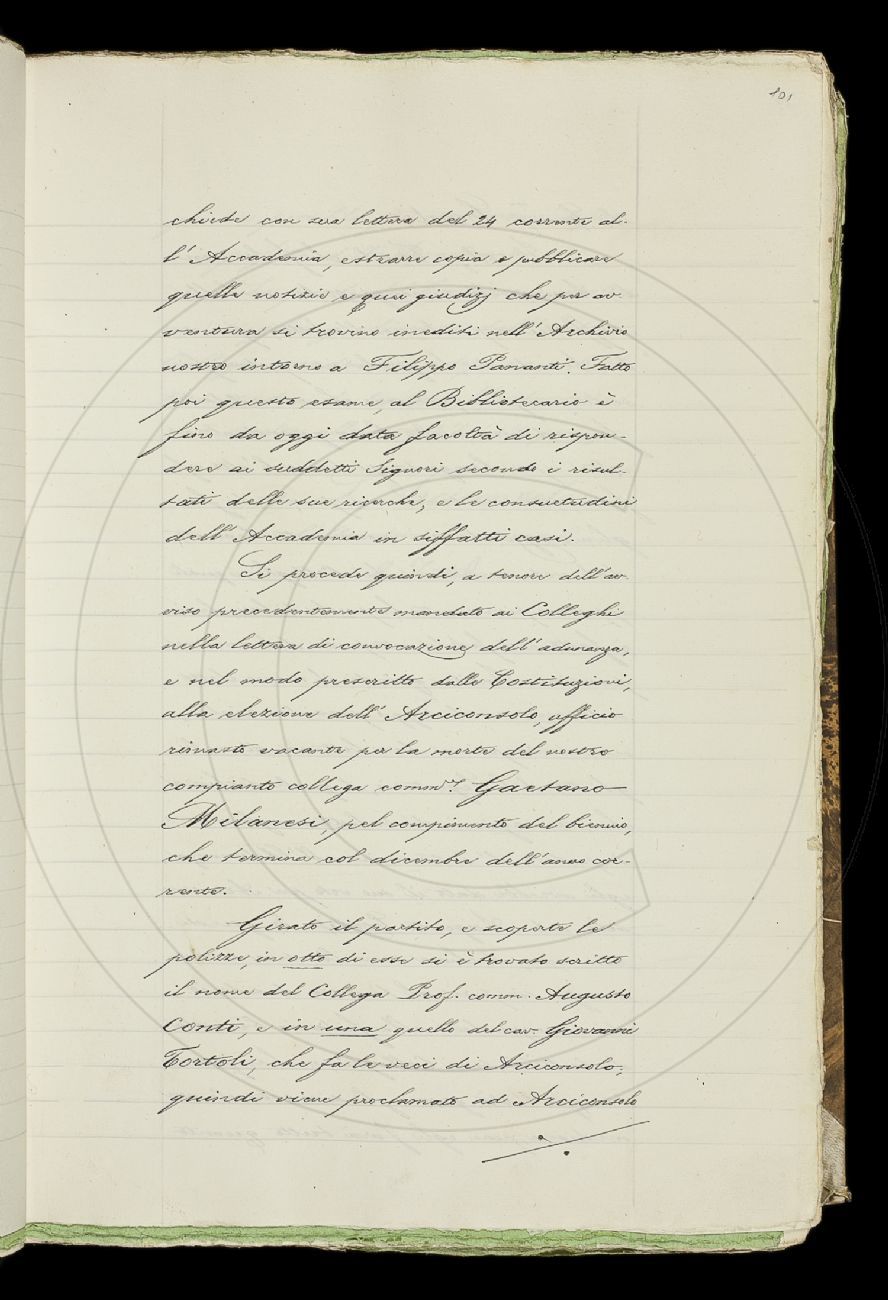 101
chiede con sua lettera del 24 corrente al-
l'Accademia, estrarre copia e pubblicare
quelle notizie e quei giudizj che per av-
ventura si trovino inediti nell'Archivio
nostro intorno a Filippo Pananti. Fatto
poi questo esame, al Bibliotecario è
fino da oggi data facoltà di rispon-
dere ai suddetti Signori secondo i risul-
tati delle sue ricerche, e le consuetudini
dell'Accademia in siffatti casi.
Si procede quindi, a tenore dell'av-
viso precedentemente mandato ai Colleghi
nella lettera di convocazione dell'adunanza,
e nel modo prescritto dalle Costituzioni,
alla elezione dell'Arciconsolo, ufficio
rimasto vacante per la morte del nostro
compianto collega comm.r Gaetano
Milanesi, pel compimento del biennio,
che termina col dicembre dell'anno cor-
rente.
Girato il partito, e scoperte le
polizze, in otto di esse si è trovato scritto
il nome del Collega Prof. comm. Augusto
Conti, e in una quello del cav. Giovanni
Tortoli, che fa le veci di Arciconsolo;
quindi viene proclamato ad Arciconsolo